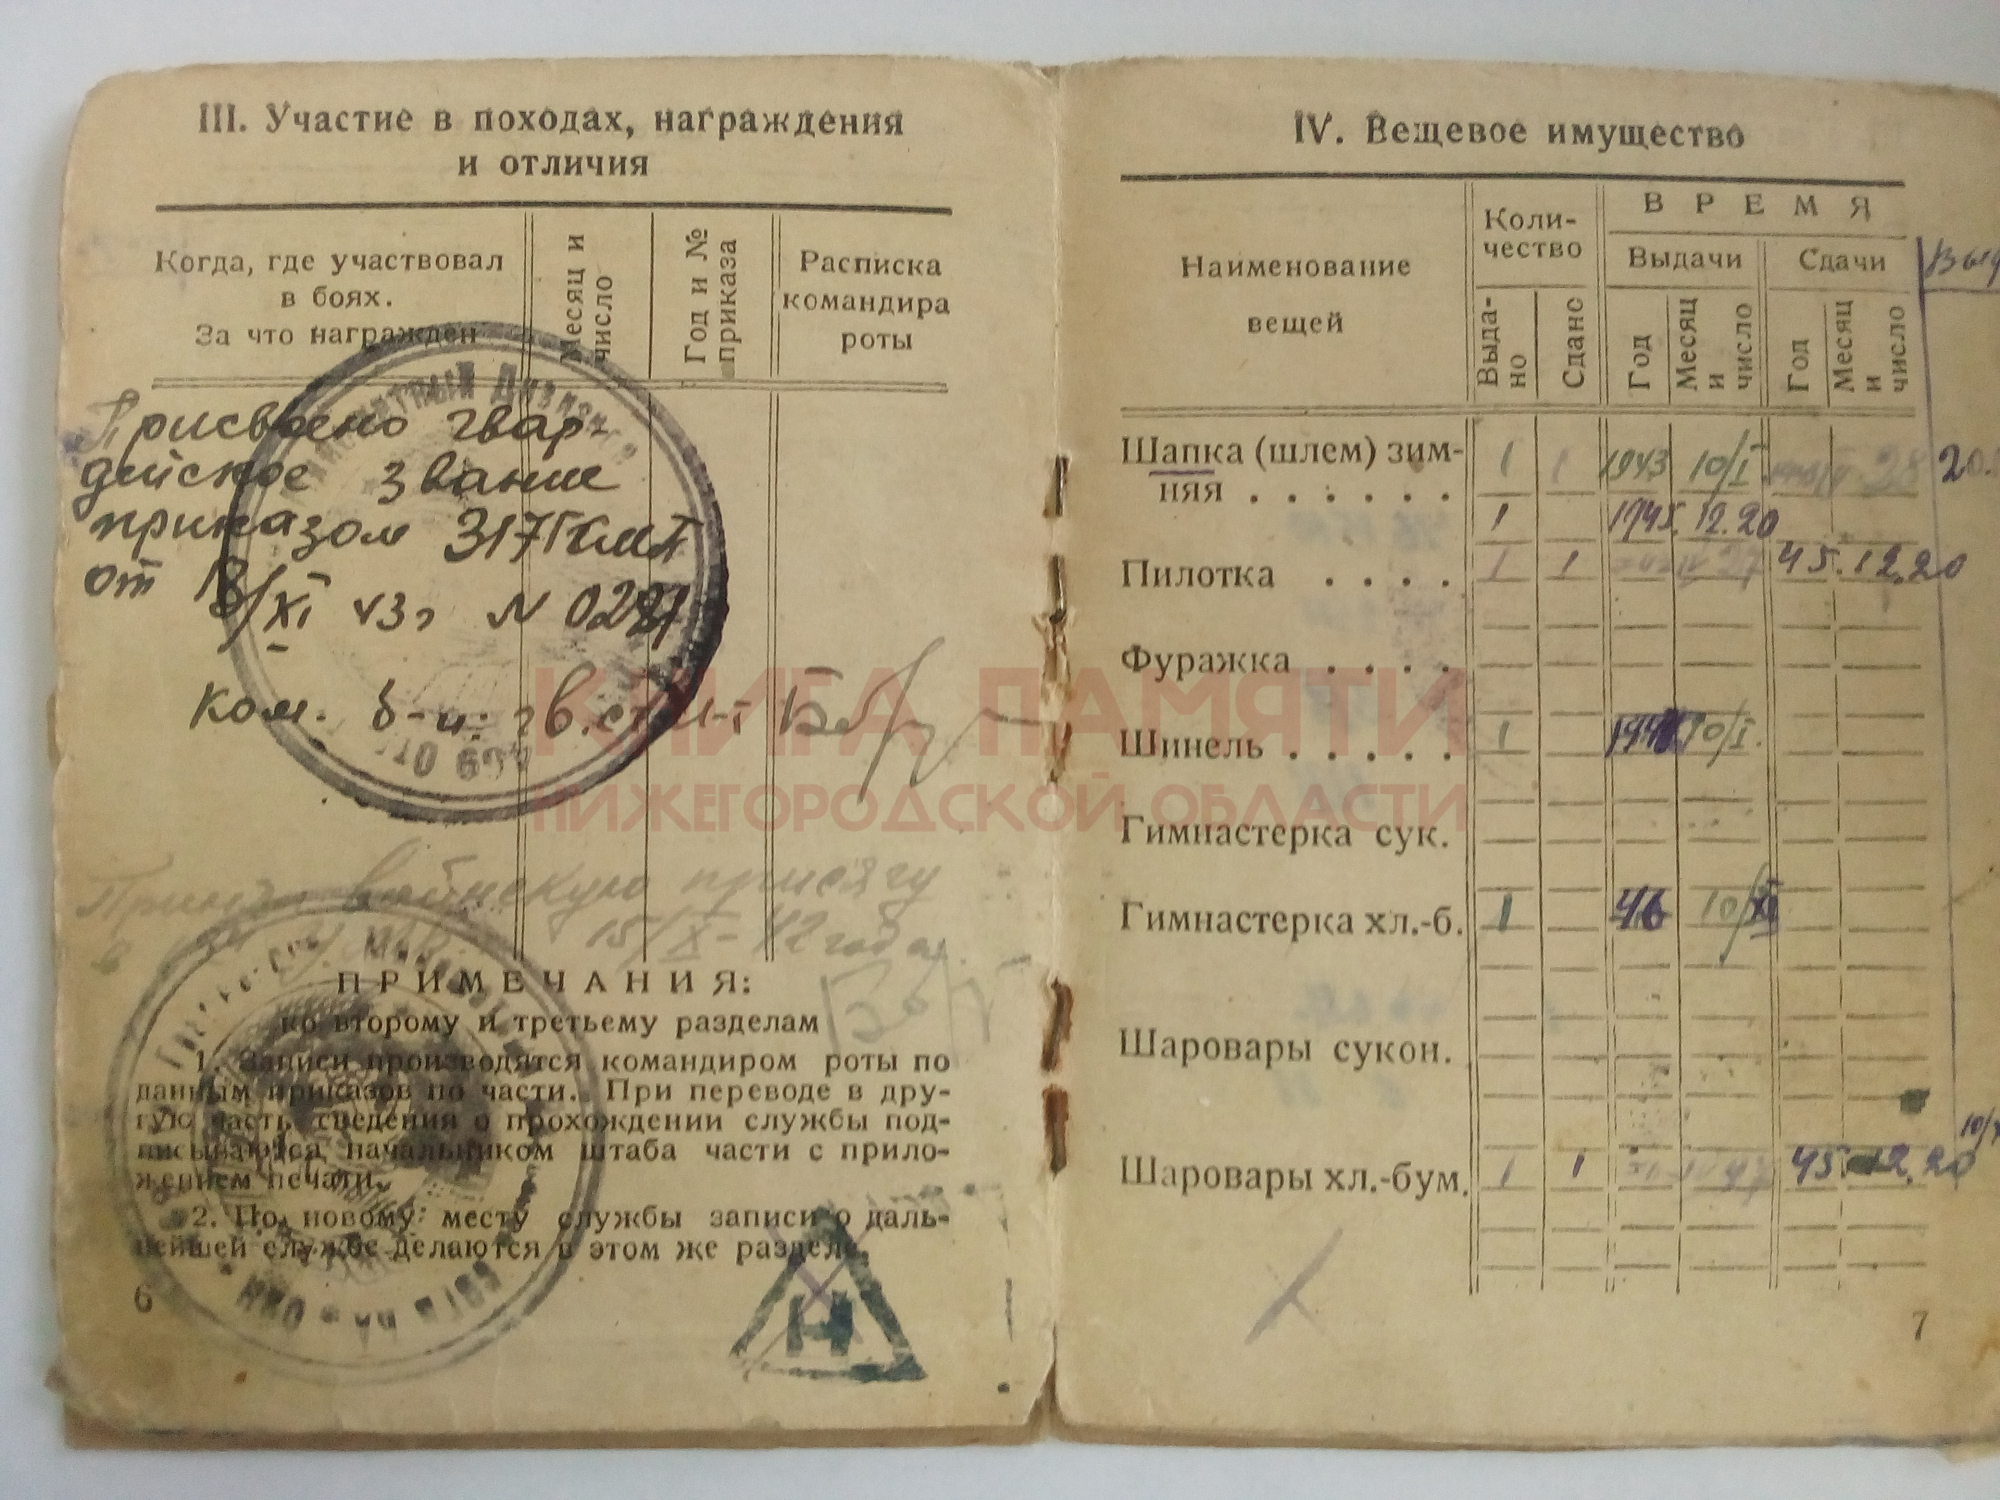 III. Участие в походах, награждения
и отличия
Когда, где участвовал
в боях.
За что награжден
Месяц и
число
Год и №
приказа
Расписка
командира
роты
Присвоено гвар-
дейское звание
приказом
от 18/XI 43г N
ком. б-и: гв.
Принял войнскую присягу
15/X-42 года.
ПРИМЕЧАНИЯ:
ко второму и третьему разделам
1. Записи производятся командиром роты по
данным приказов по части. При переводе в дру-
гую часть сведения о прохождении службы под-
писываются начальником штаба части с прило-
жением печати.
2. По новому месту службы записи о даль-
нейшей службе делаются в этом же разделе.
Н
6
IV. Вещевое имущество
Наименование
вещей
Коли-
чество
Выда-
но
Сдано
ВРЕМЯ
Выдачи
Сдачи
Год
Месяц
и
число
Год
Месяц
и
число
Шапка (шлем) зим- 1 1 1943 10/I
няя . . . . . .
1 1945. 12.20
Пилотка . . . . 1 1 45. 12.20
Фуражка . . . .
Шинель . . . . . 1 10/I.
Гимнастерка сук.
Гимнастерка хл.-б. 1 46 10/XI
Шаровары сукон.
Шаровары хл.-бум. 1 1 45. 12.20
7
КНИГА ПАМЯТИ
НИЖЕГОРОДСКОЙ ОБЛАСТИ